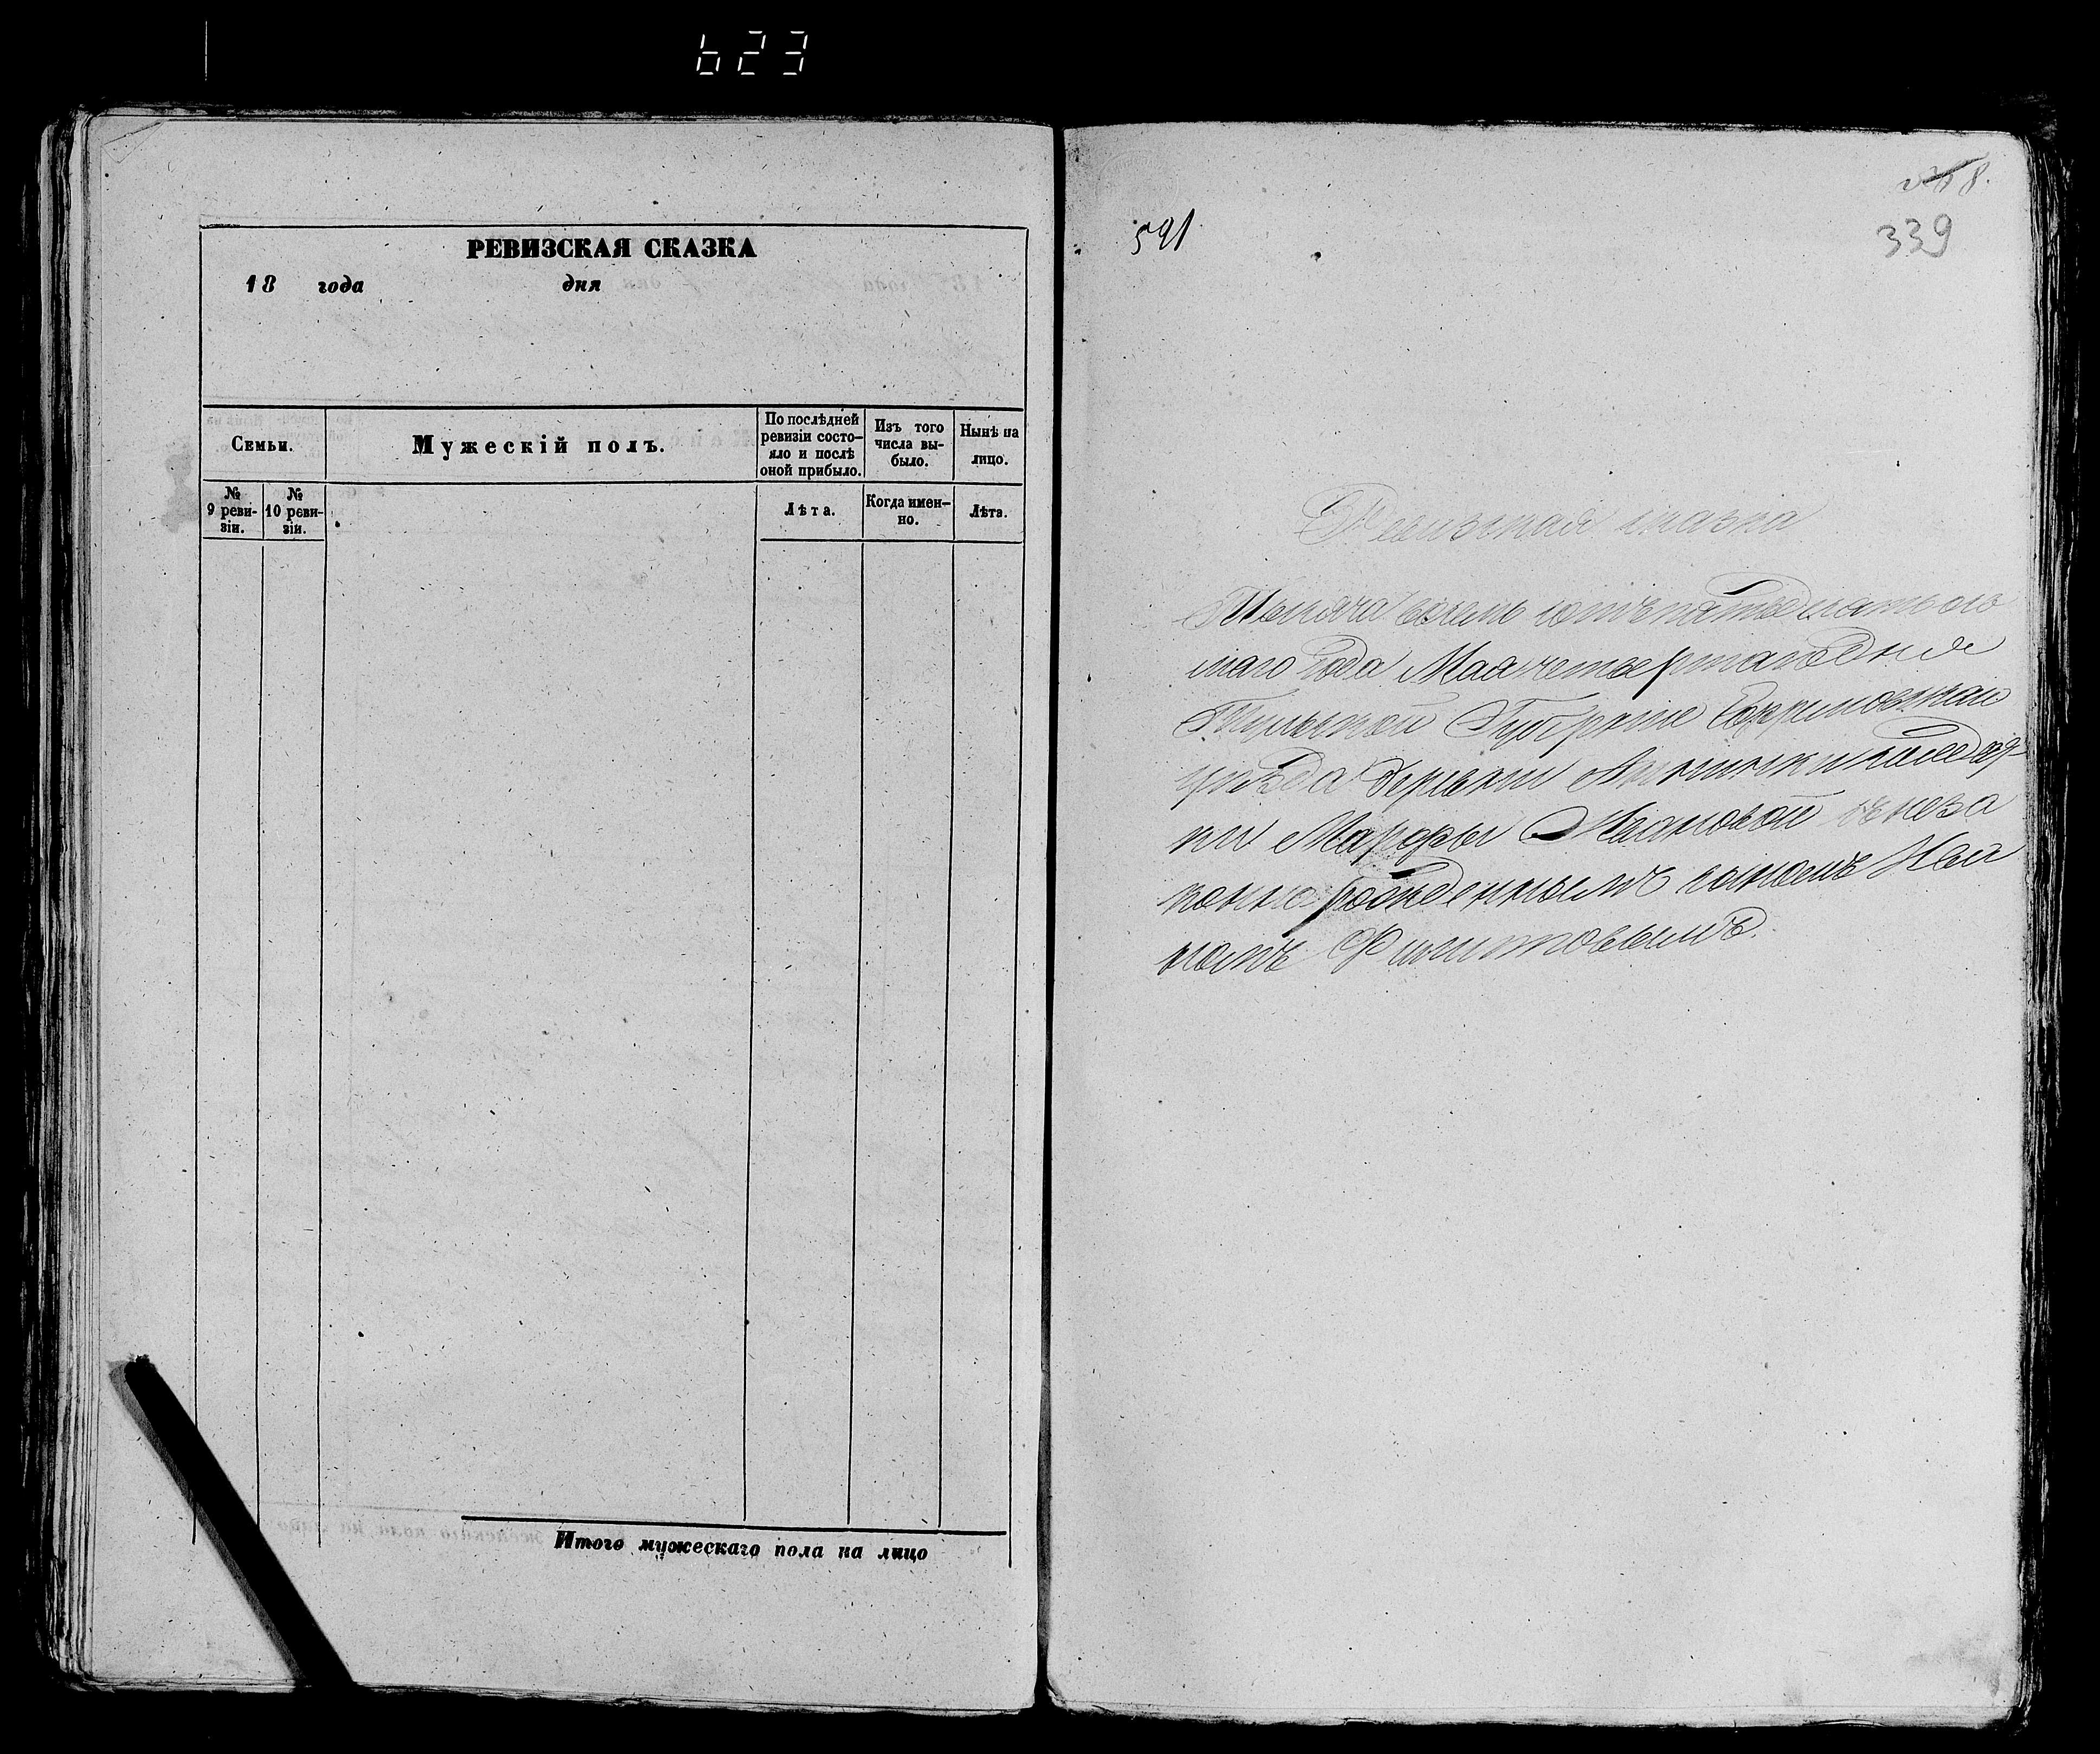 623
РЕВИЗСКАЯ СКАЗКА
18 года дня
Семьи.
Мужескій полъ.
По послѣдней ревизіи состо-
яло и послѣ
оной прибыло.
Изъ того
числа вы-
было.
Нынѣ на
лицо.
№
9 реви-
зіи.
№
10 реви-
зіи.
Лѣта.
Когда имен-
но.
Лѣта.
Итого мужескаго пола на лицо
8.
591
339
Ревизская сказка
Тысяча восемь сотъ пятьдесятъ ось
маго года Мая четвертаго дня
Тульской Губерніи Ефремовскаго
уѣзда деревни солдат-
ки Марфы Ивановой съ неза
коннорожденнымъ сыномъ Ива
номъ Филиповымъ.